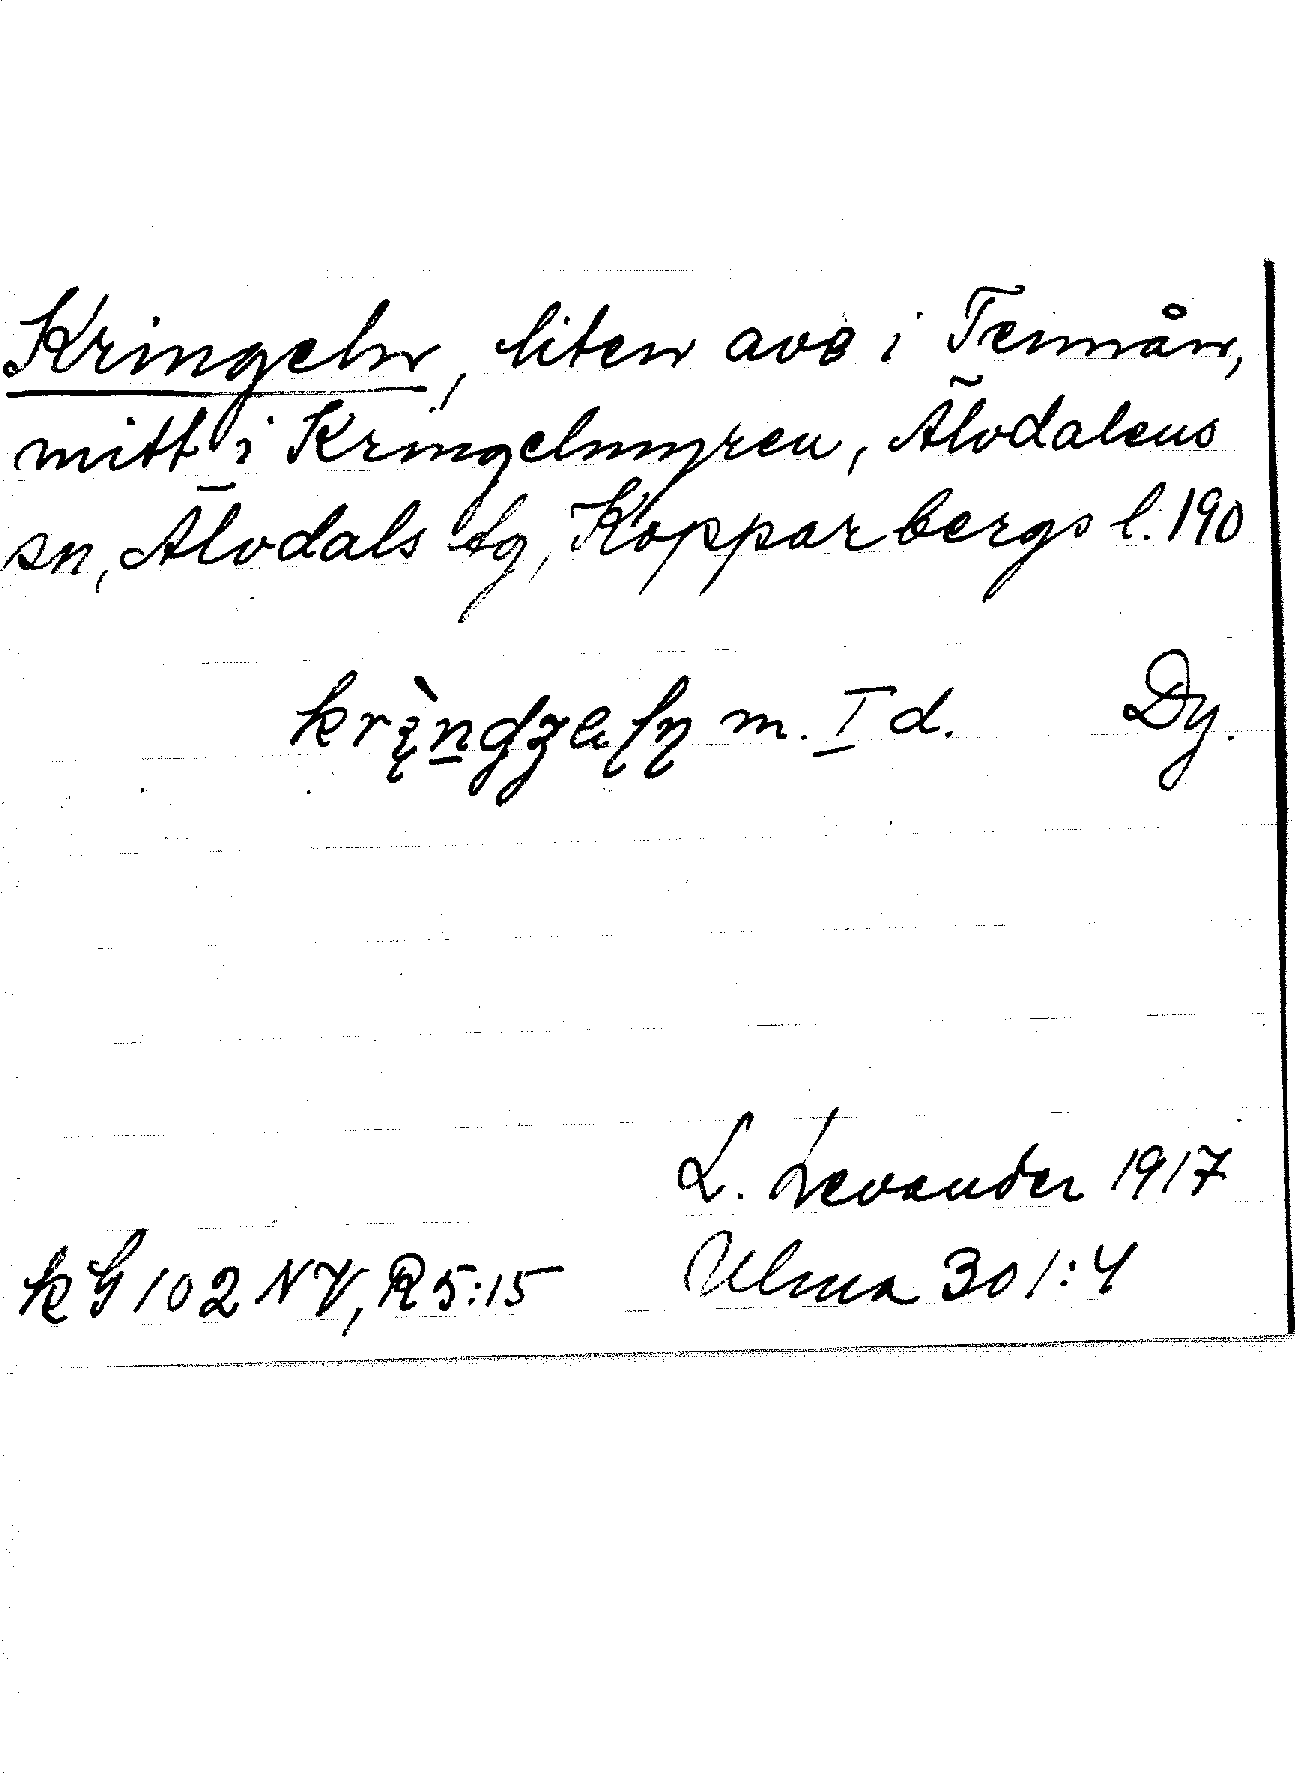 Kringeln, liten avs i Tennån,
mitt i Kringelmyren, Älvdalens
sn, Älvdals tg, Kopparbergs l. 190
m. I d. Dy.
L. Levander 1917
kG 102 NV, R5:15 Ulma 301:4